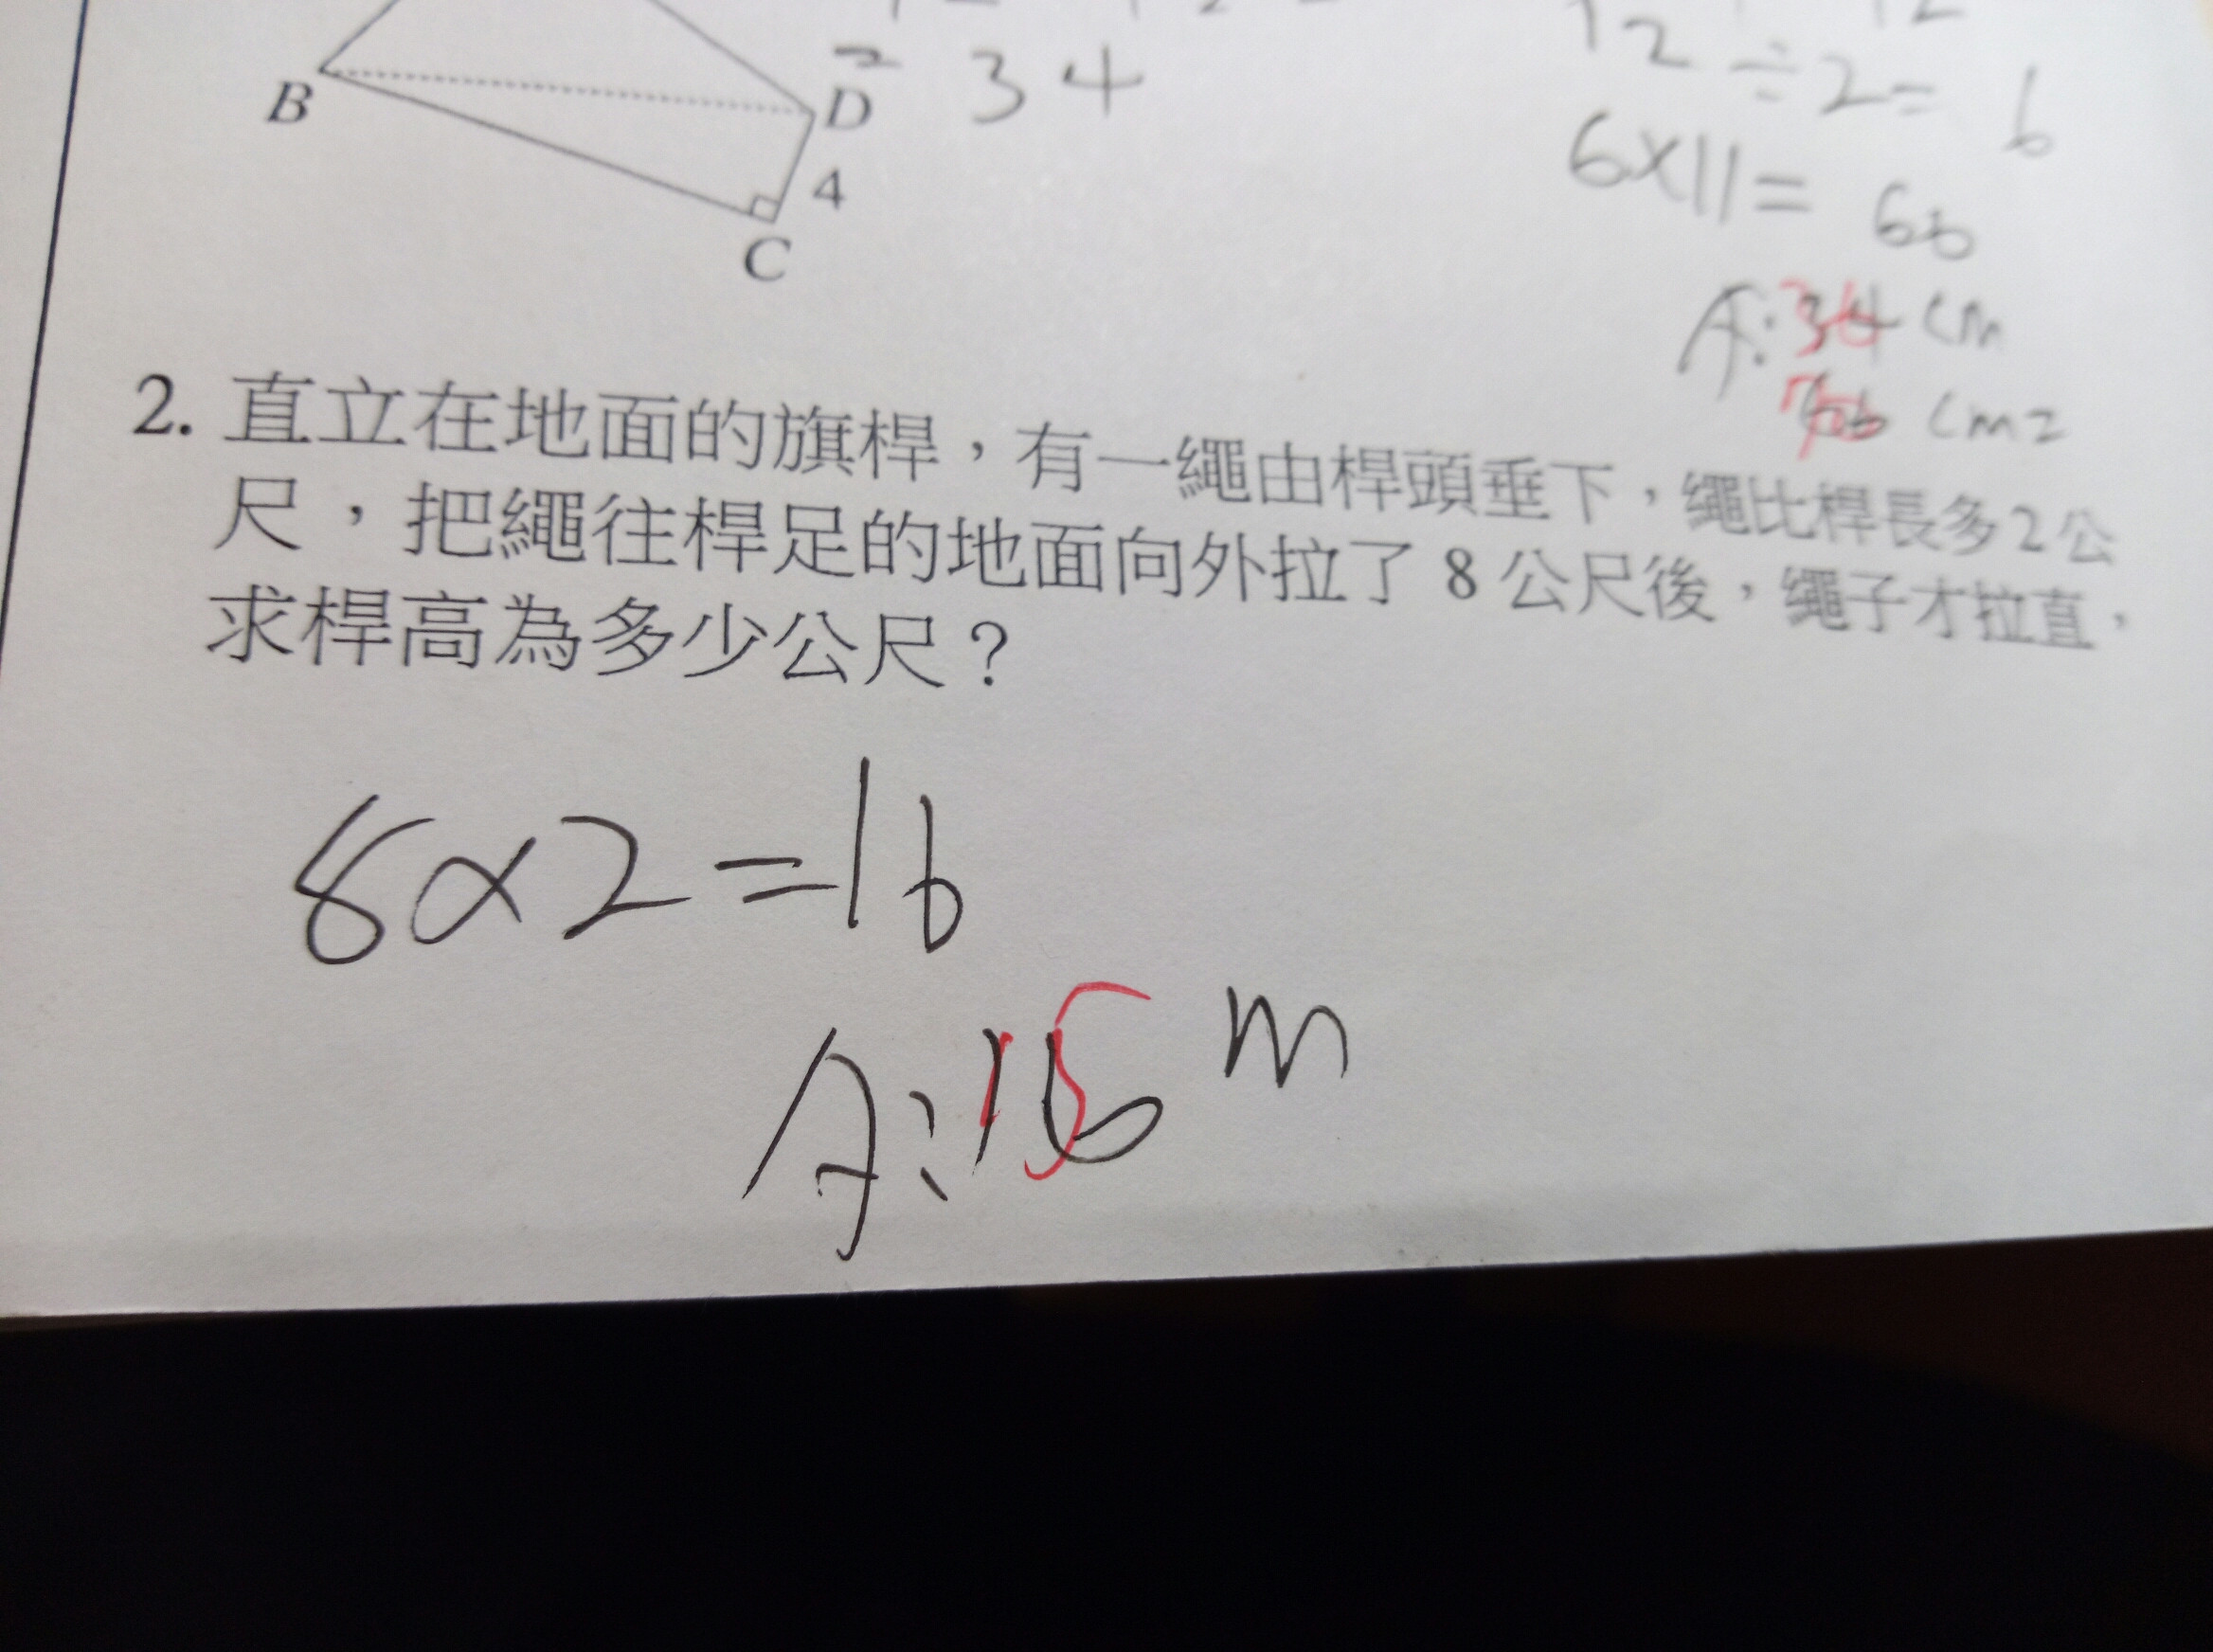 B
D
4
C
34
12÷2=6
6×11=66
A:34 cm
66 cm2
2. 直立在地面的旗桿，有一繩由桿頭垂下，繩比桿長多2公
尺，把繩往桿足的地面向外拉了 8 公尺後，繩子才拉直，
求桿高為多少公尺？
8×2=16
A:16 m
15